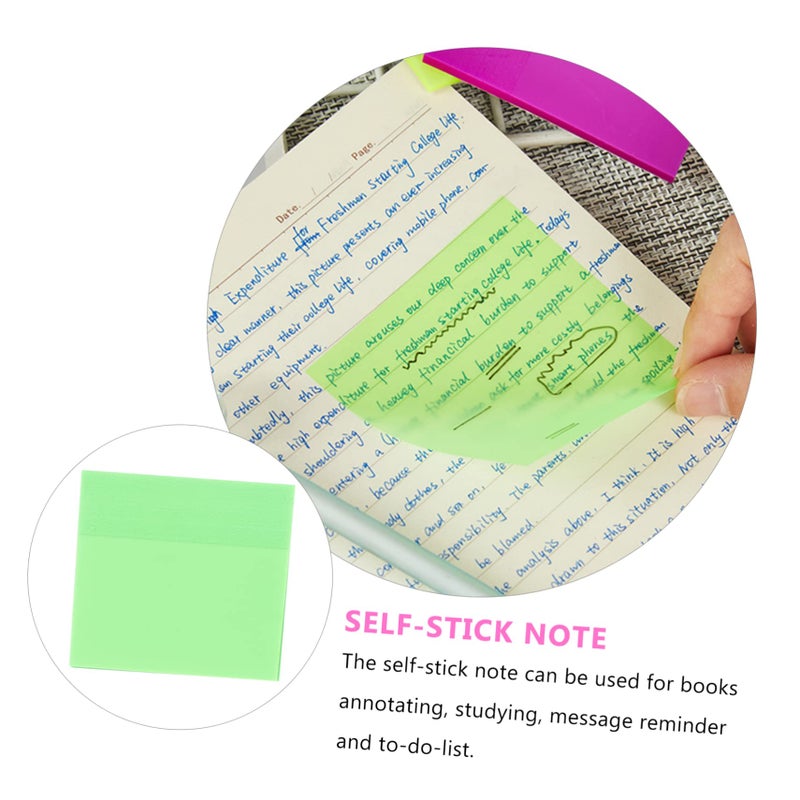 Date. / / Page.
Expenditure for Freshman Starting College life.
clear manner, this picture presents an ever increasing
starting their college life, covering mobile phone, com
other equipment.
this picture arouses our deep concern over the
high expenditure for freshman starting college life. Todays
shouldering a heavey financical burden to support
entering a financial burden to support a freshman
because the ask for more costly belongings
clothes, the smart phones
and so on. should the freshman
responsibility. The parents, spoiling
be blamed.
the analysis above, I think, it is high
drawn to this situation. Not only the
SELF-STICK NOTE
The self-stick note can be used for books
annotating, studying, message reminder
and to-do-list.